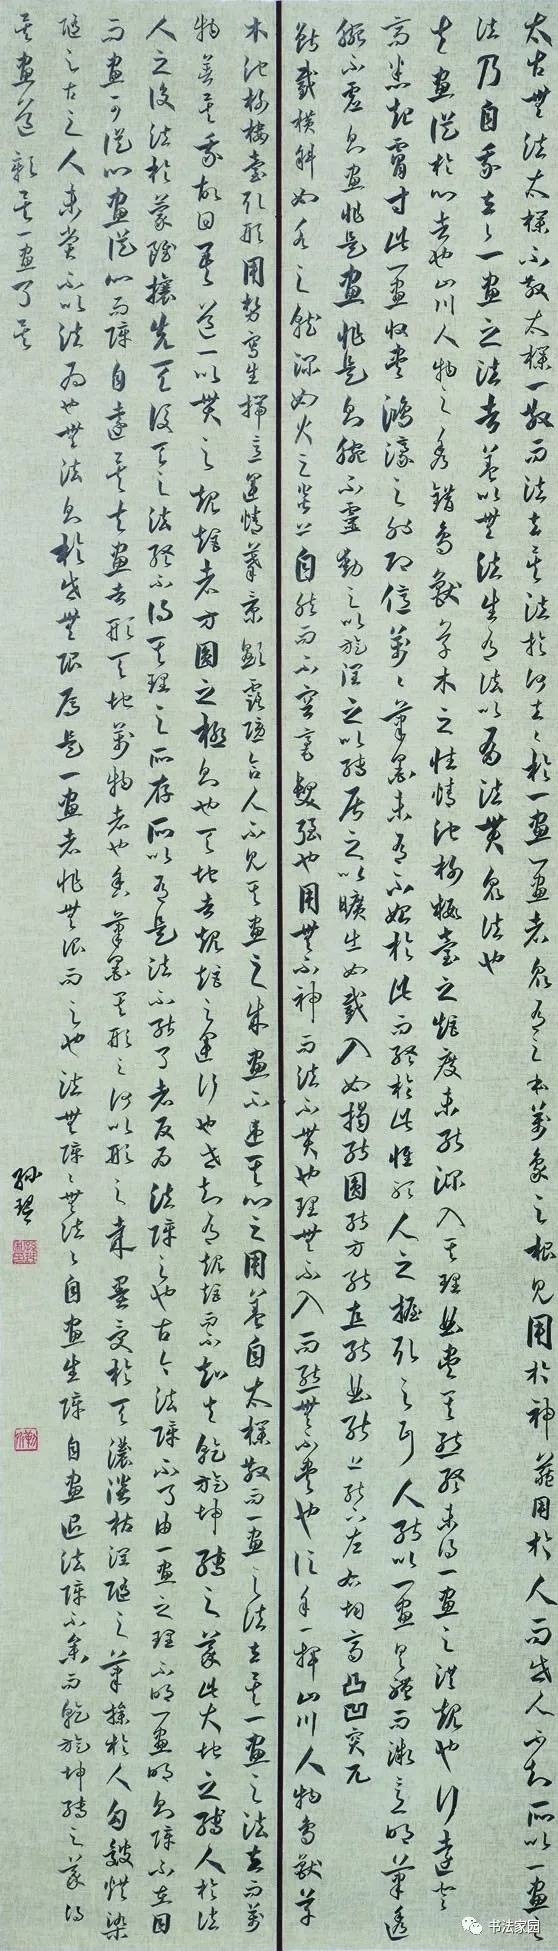 太古無法太樸不散太樸一散而法立矣法於何立立於一畫一畫者眾有之本萬象之根見用於神藏用於人而世人不知所以一畫之
法乃自我立立一畫之法者蓋以無法生有法以有法貫眾法也
夫畫從於心者也山川人物之秀錯鳥獸草木之性情池榭樓臺之矩度未能深入其理曲盡其態終未得一畫之洪規也行遠登
高悉起膚寸此一畫收盡鴻濛之外即億萬萬筆墨未有不始於此而終於此惟聽人之握取之耳人能以一畫具體而微意明筆透
腕不虛則畫非是畫非是則腕不靈動之以旋潤之以轉居之以曠出如截入如揭能圓能方能直能曲能上能下左右均齊凸凹突兀
斷截橫斜如水之就深如火之炎上自然而不容毫髮強也用無不神而法不貫也理無不入而態無不盡也信手一揮山川人物鳥獸草
木池榭樓臺取形用勢寫生揣意運情摹景顯露隱含人不見其畫之成畫不違其心之用蓋自太樸散而一畫之法立矣一畫之法立而萬
物著矣我故曰吾道一以貫之規矩者方圓之極則也天地者規矩之運行也世知有規矩而不知夫乾旋坤轉之義此天地之縛人於法
人之役法於蒙雖攘先天後天之法終不得其理之所存所以有是法不能了者反為法障之也古今法障不了由一畫之理不明一畫明則障不在目
而畫可從心畫從心而障自遠矣夫畫者形天地萬物者也舍筆墨其形之何以形之哉墨受於天濃淡枯潤隨之筆操於人勾皴烘染
隨之古之人未嘗不以法為也無法則於世無限焉是一畫者非無限而之也法無障障無法法自畫生障自畫退法障不參而乾旋坤轉之義得
矣畫道彰矣一畫了矣
书法家园